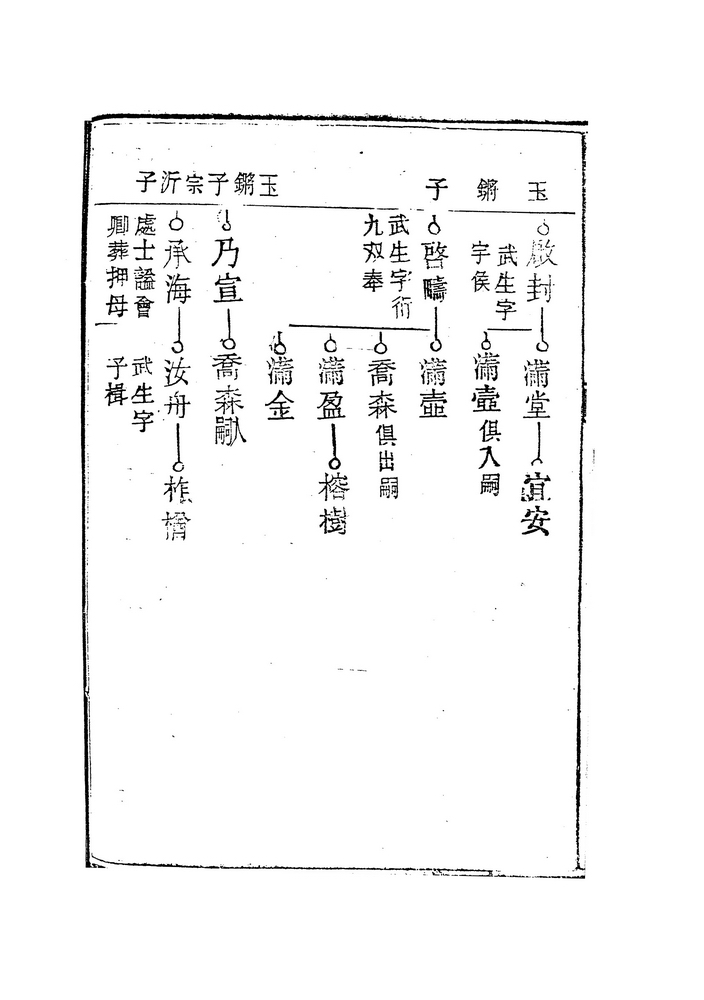 玉鏘子
玉鏘子宗沂子
啟封
武生字
字侯
滿堂
宜安
滿壼俱入嗣
啓疇
武生字衍
九双奉
滿壼
喬森俱出嗣
滿盈
榕樹
滿金
乃宣
喬森嗣
承海
處士謚會
卿葬押母
汝舟
武生字
子楫
樵